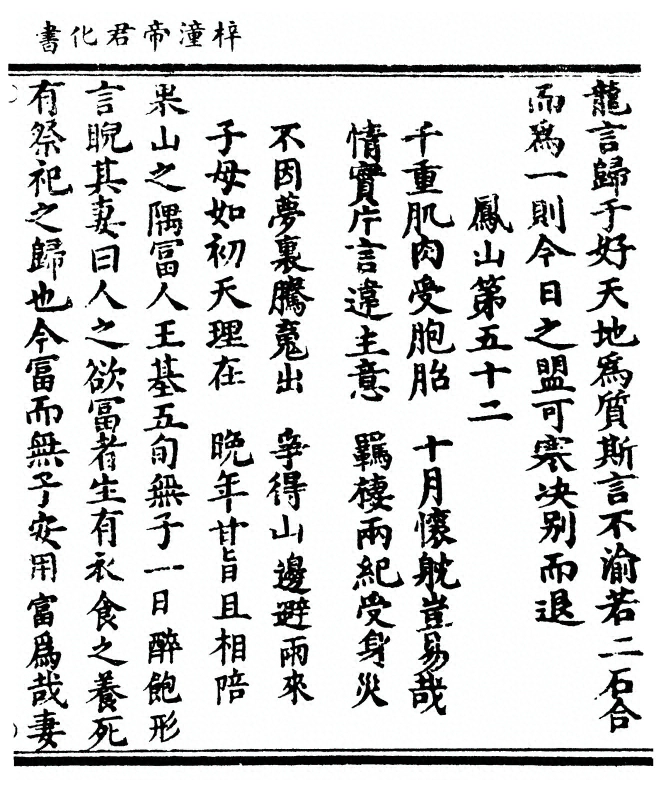 梓潼帝君化書
龍言歸于好天地爲質斯言不渝若二石合
而爲一則今日之盟可寒决别而退
鳳山第五十二
千重肌肉受胞胎　十月懷躭豈易哉
情實片言違主意　羈棲兩紀受身灾
不因夢裏騰蒐出　爭得山邊避雨來
子母如初天理在　晚年甘旨且相陪
果山之隅冨人王基五旬無子一日醉飽形
言睨其妻曰人之欲冨者生有衣食之養死
有祭祀之歸也今冨而無子安用富爲哉妻